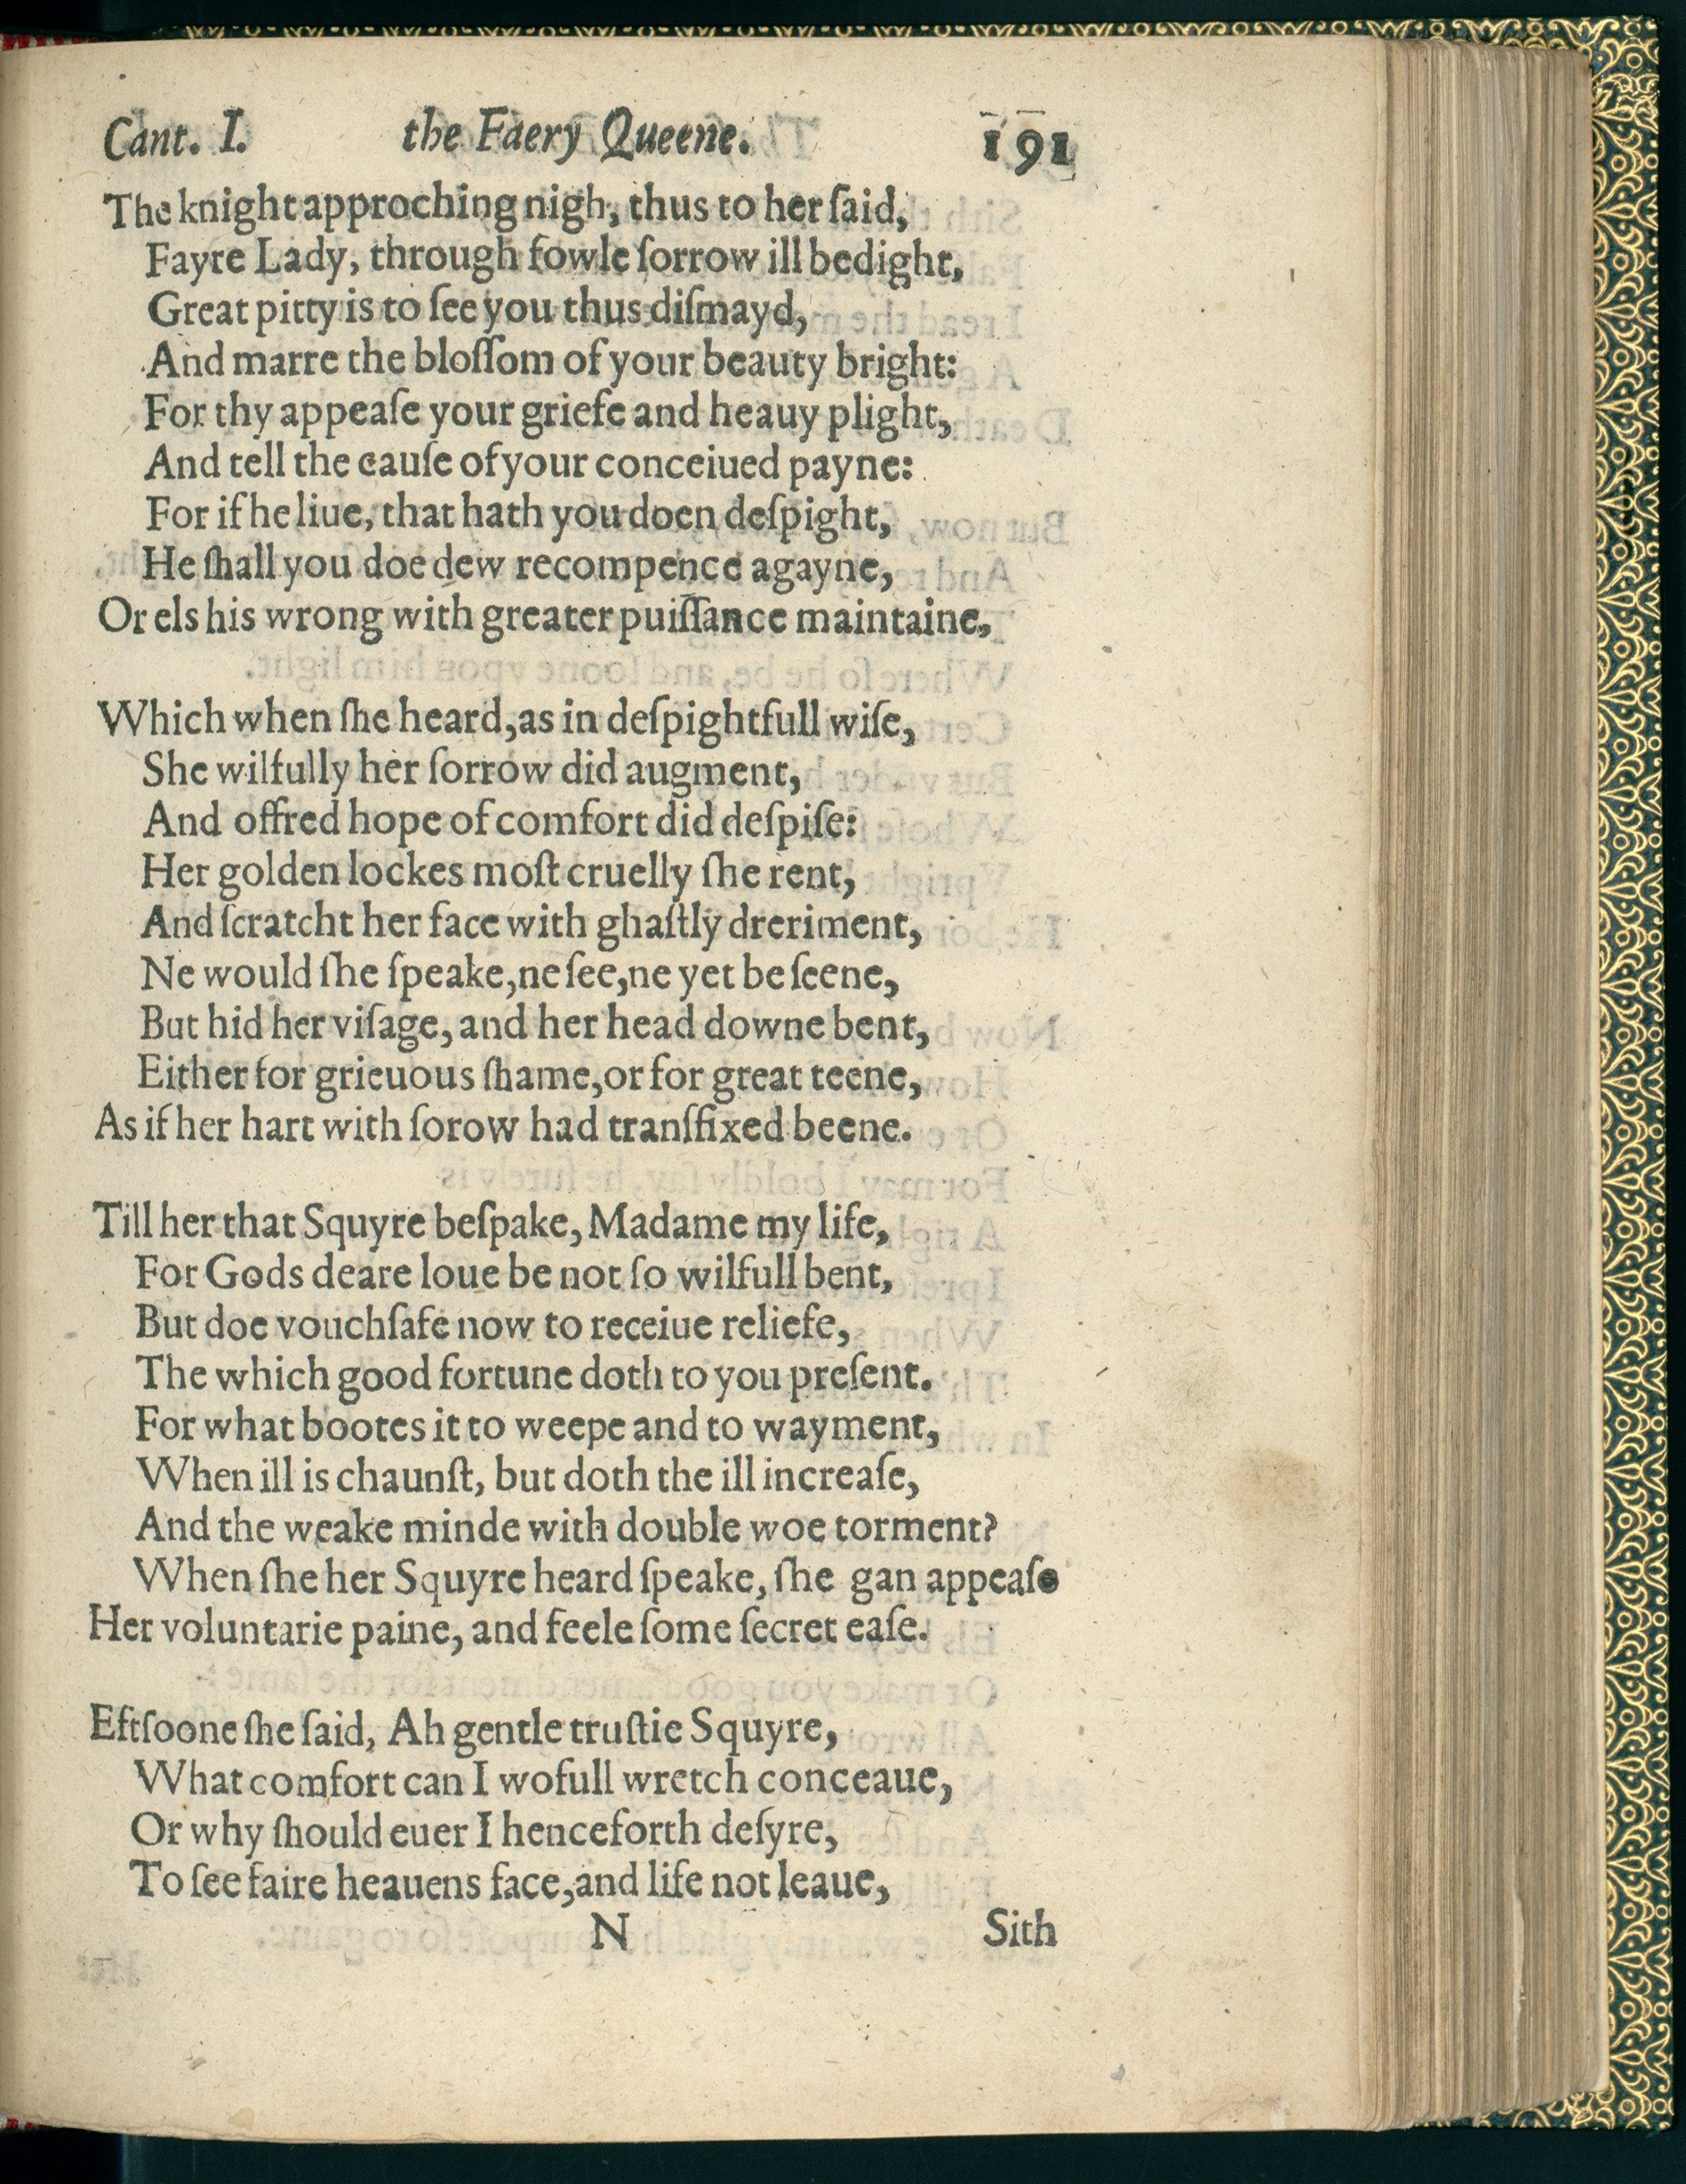 Cant. I. the Faery Queene. 191
The knight approching nigh, thus to her ſaid,
Fayre Lady, through fowle ſorrow ill bedight,
Great pitty is to ſee you thus diſmayd,
And marre the bloſſom of your beauty bright:
For thy appeaſe your griefe and heauy plight,
And tell the cauſe of your conceiued payne:
For if he liue, that hath you doen deſpight,
He ſhall you doe dew recompence agayne,
Or els his wrong with greater puiſſance maintaine,
Which when ſhe heard, as in deſpightfull wiſe,
She wilfully her ſorrow did augment,
And offred hope of comfort did deſpiſe:
Her golden lockes moſt cruelly ſhe rent,
And ſcratcht her face with ghaſtly dreriment,
Ne would ſhe ſpeake, ne ſee, ne yet be ſeene,
But hid her viſage, and her head downe bent,
Either for grieuous ſhame, or for great teene,
As if her hart with ſorow had tranſfixed beene.
Till her that Squyre beſpake, Madame my life,
For Gods deare loue be not ſo wilfull bent,
But doe vouchſafe now to receiue reliefe,
The which good fortune doth to you preſent.
For what bootes it to weepe and to wayment,
When ill is chaunſt, but doth the ill increaſe,
And the weake minde with double woe torment?
When ſhe her Squyre heard ſpeake, ſhe gan appeaſe
Her voluntarie paine, and feele ſome ſecret eaſe.
Eftſoone ſhe ſaid, Ah gentle truſtie Squyre,
What comfort can I wofull wretch conceaue,
Or why ſhould euer I henceforth deſyre,
To ſee faire heauens face, and life not leaue,
N Sith